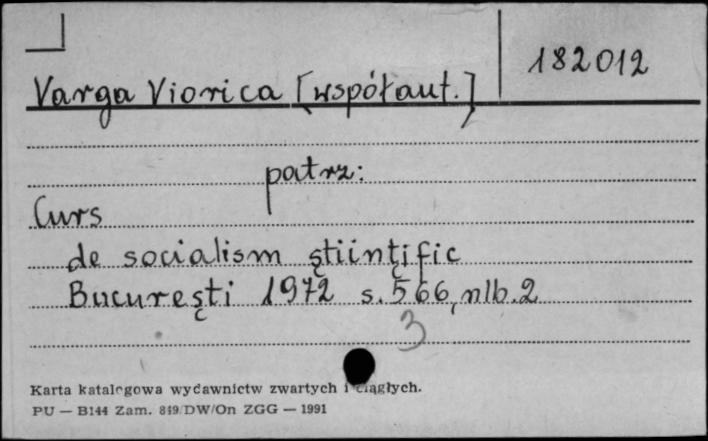 182012
Varga Viorica [współaut.]
patrz:
Curs
de socialism științific
București 1972 s. 566, nlb. 2
3
Karta katalogowa wydawnictw zwartych i ciągłych.
PU — B144 Zam. 849/DW/On ZGG — 1991